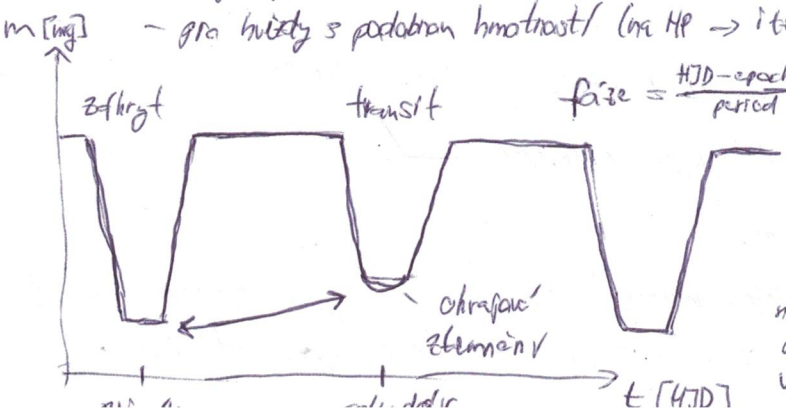 m [mag] - pro hvězdy s podobnou hmotností (na HP →
zákryt
transit
fáze = HJD-epoch
period
okrajové
ztemnění
t [HJD]